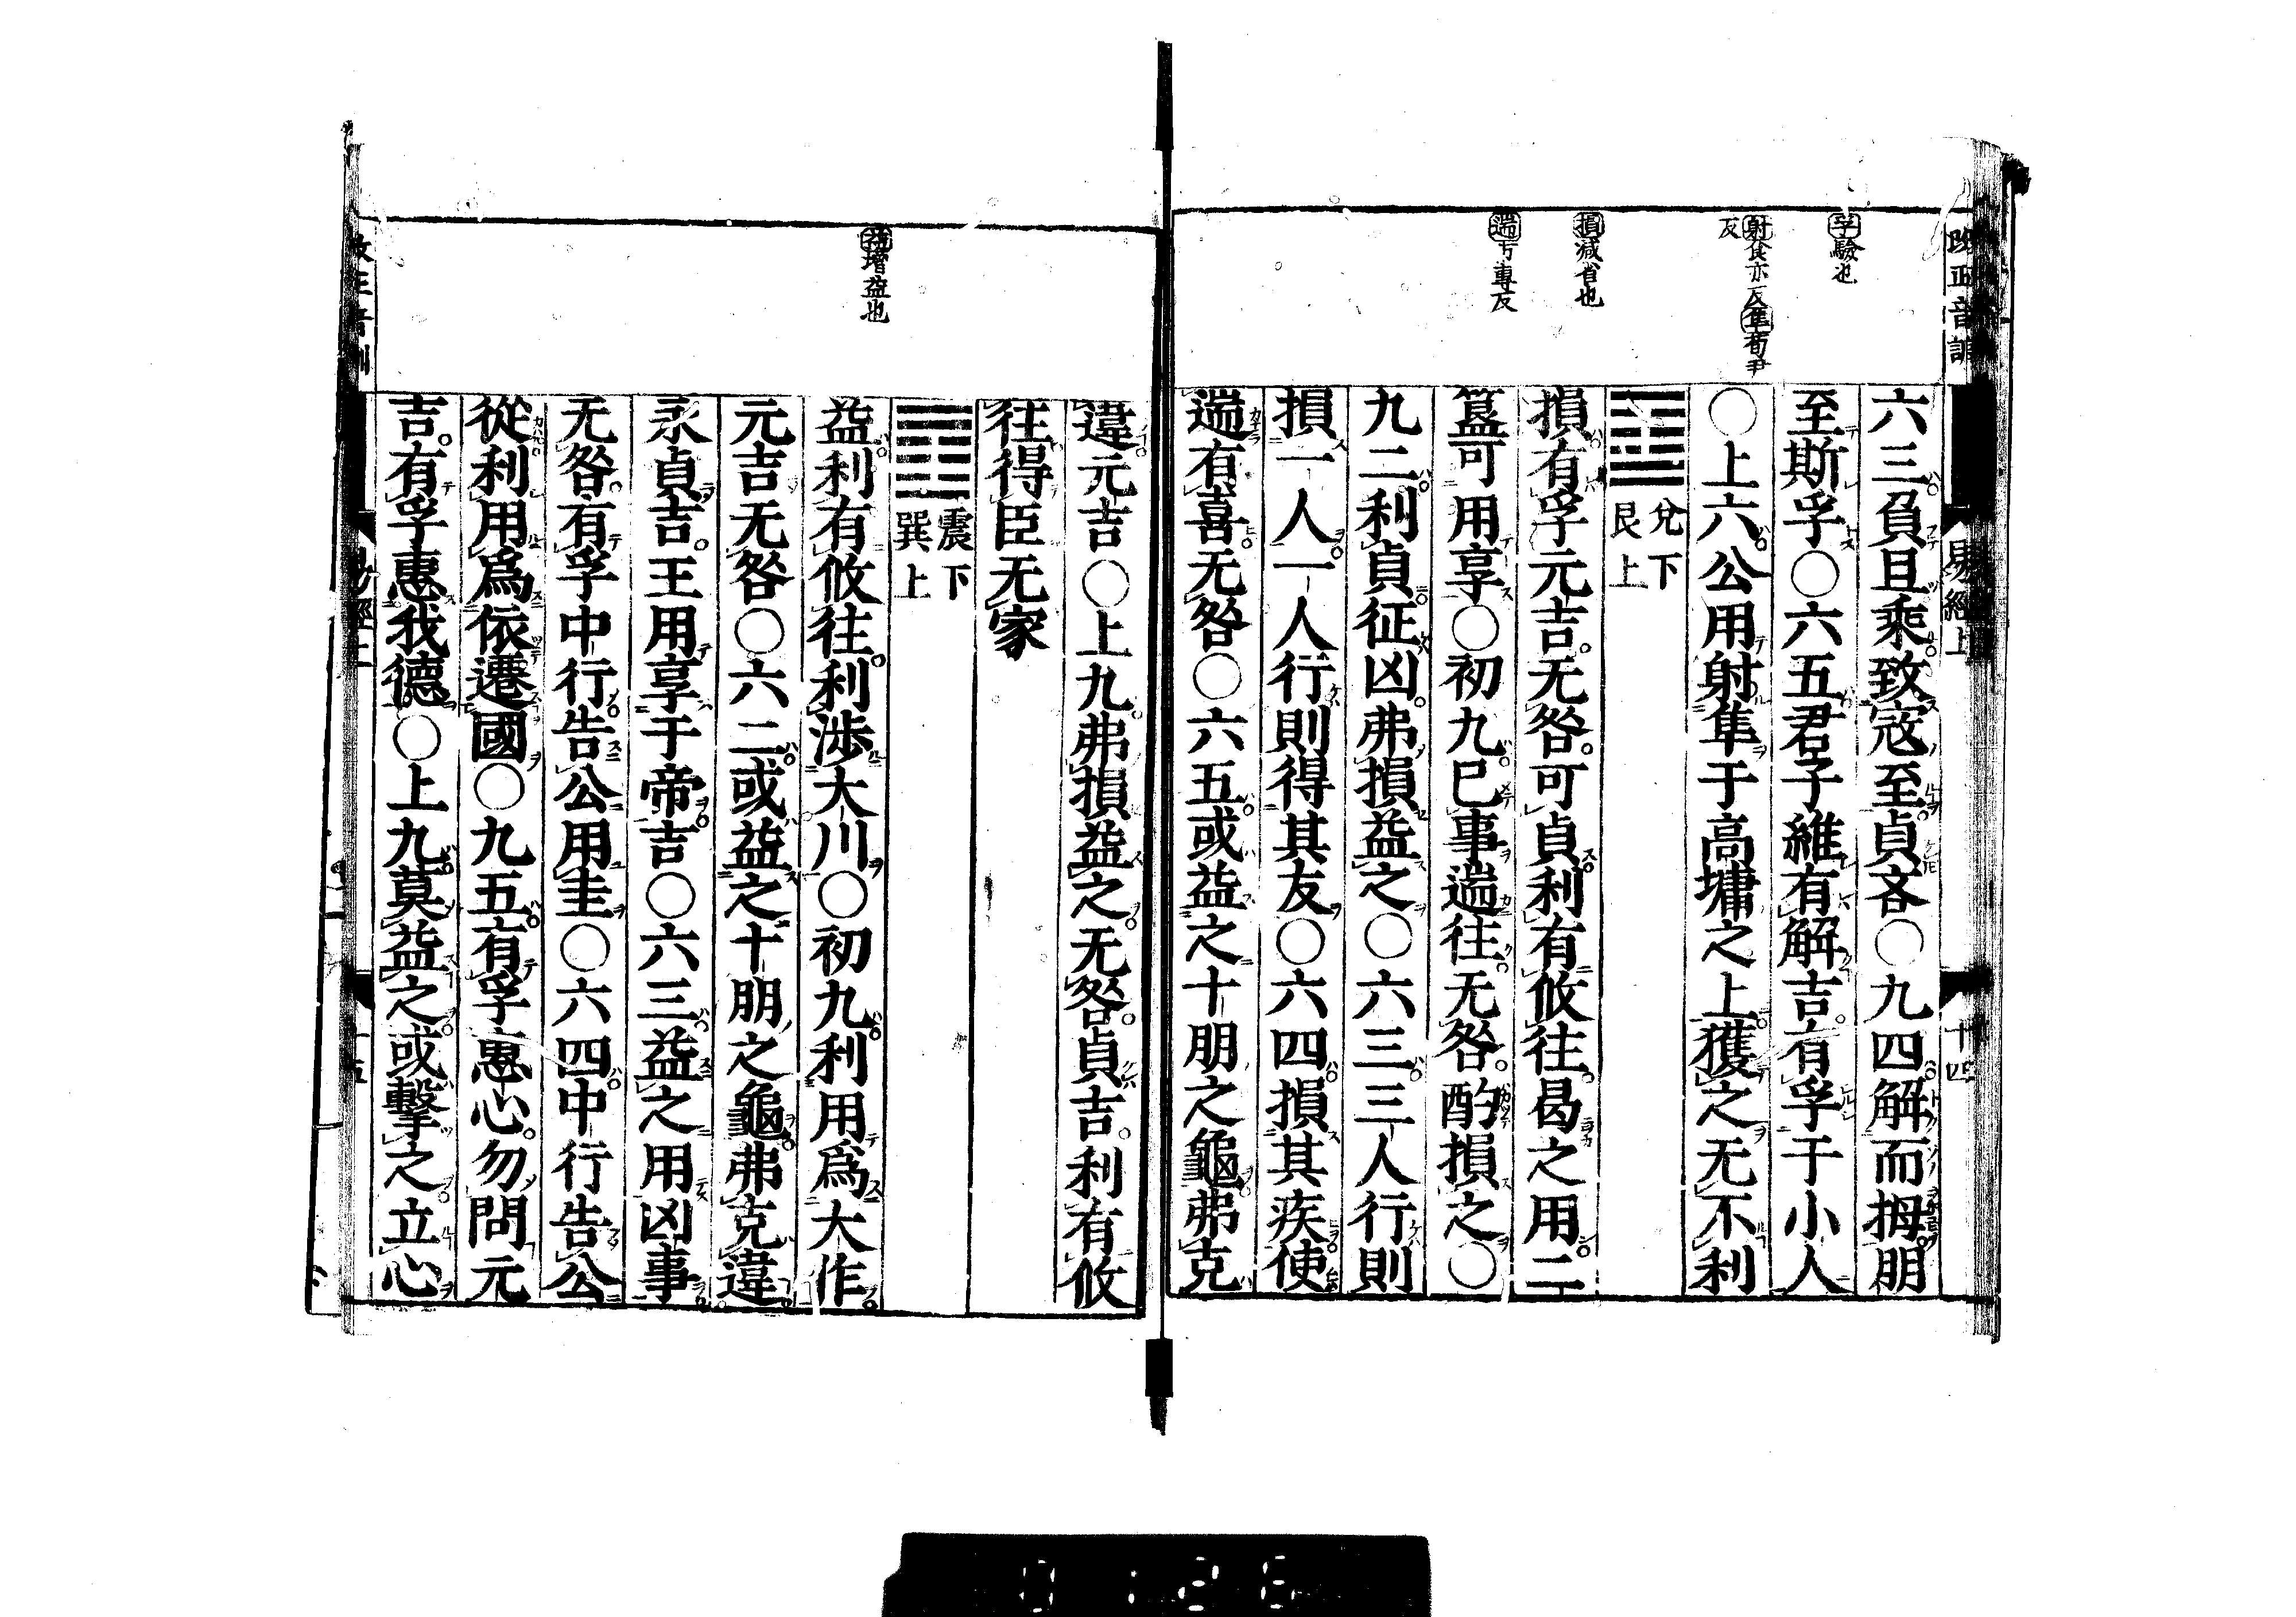 改正音訓
易經上
十四
孚驗也
射食亦反隼荀尹
反
損減省也
遄市專反
六三負且乘致寇至貞吝○九四解而拇朋
至斯孚○六五君子維有解吉有孚于小人
○上六公用射隼于高墉之上獲之无不利
兌下
艮上
損有孚元吉无咎可貞利有攸往曷之用二
簋可用享○初九已事遄往无咎酌損之○
九二利貞征凶弗損益之○六三三人行則
損一人一人行則得其友○六四損其疾使
遄有喜无咎○六五或益之十朋之龜弗克
益增益也
違元吉○上九弗損益之无咎貞吉利有攸
往得臣无家
震下
巽上
益利有攸往利涉大川○初九利用爲大作
元吉无咎○六二或益之十朋之龜弗克違
永貞吉王用享于帝吉○六三益之用凶事
无咎有孚中行告公用圭○六四中行告公
從利用爲依遷國○九五有孚惠心勿問元
吉有孚惠我德○上九莫益之或擊之立心